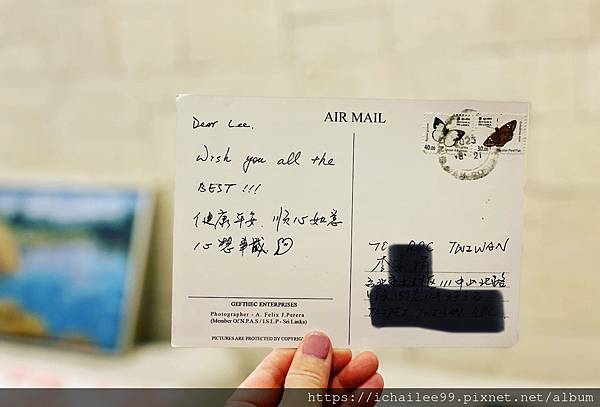 Dear Lee,
Wish you all the
BEST!!!
健康平安 順心如意
心想事成
GEFTHEC ENTERPRISES
Photographer - A. Felix J.Perera
(Member Of N.P.A.S / I.S.L.P - Sri Lanka)
PICTURES ARE PROTECTED BY COPYRIGHT
AIR MAIL
40.00
30.00
2023
TO ROC TAIWAN
111 中山北路
TAIPEI TAIWAN ROC
https://ichailee99.pixnet.net/album